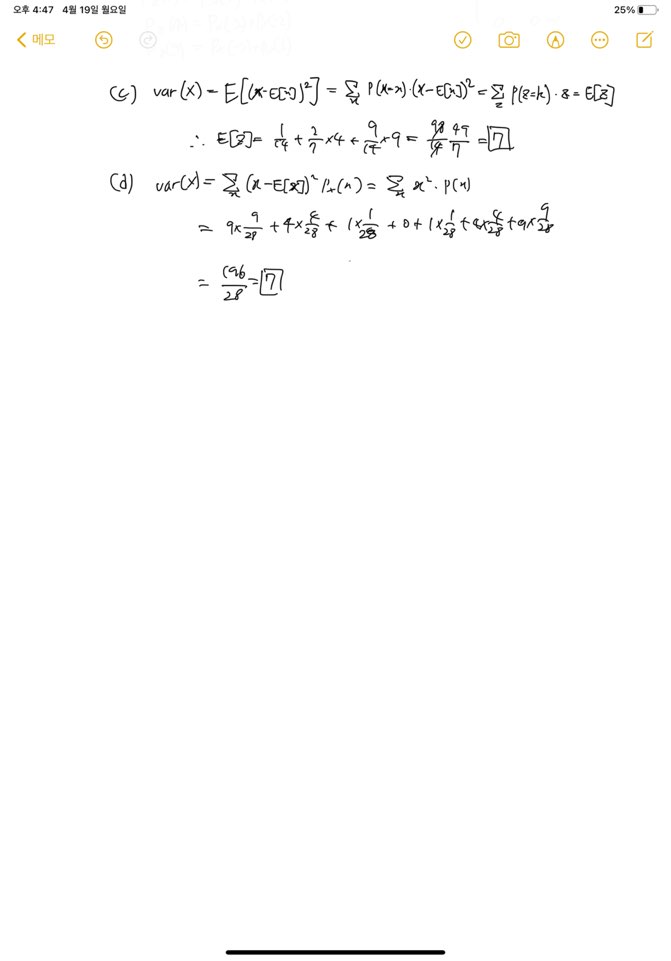 오후 4:47 4월 19일 월요일 25%
메모
(c) var(x) = E[(x-E[x])²] = Σₓ P(X=x)·(x-E[x])² = Σ_z P(z=k)·z = E[z]
∴ E[z] = 1/14 + 2/7 ×4 + 9/14 ×9 = 98/14 49/7 = 7
(d) var(x) = Σₓ (x-E[x])² Pₓ(x) = Σₓ x²·P(x)
= 9× 9/28 + 4× 4/28 + 1× 1/28 + 0 + 1× 1/28 + 4× 4/28 + 9× 9/28
= 196/28 = 7